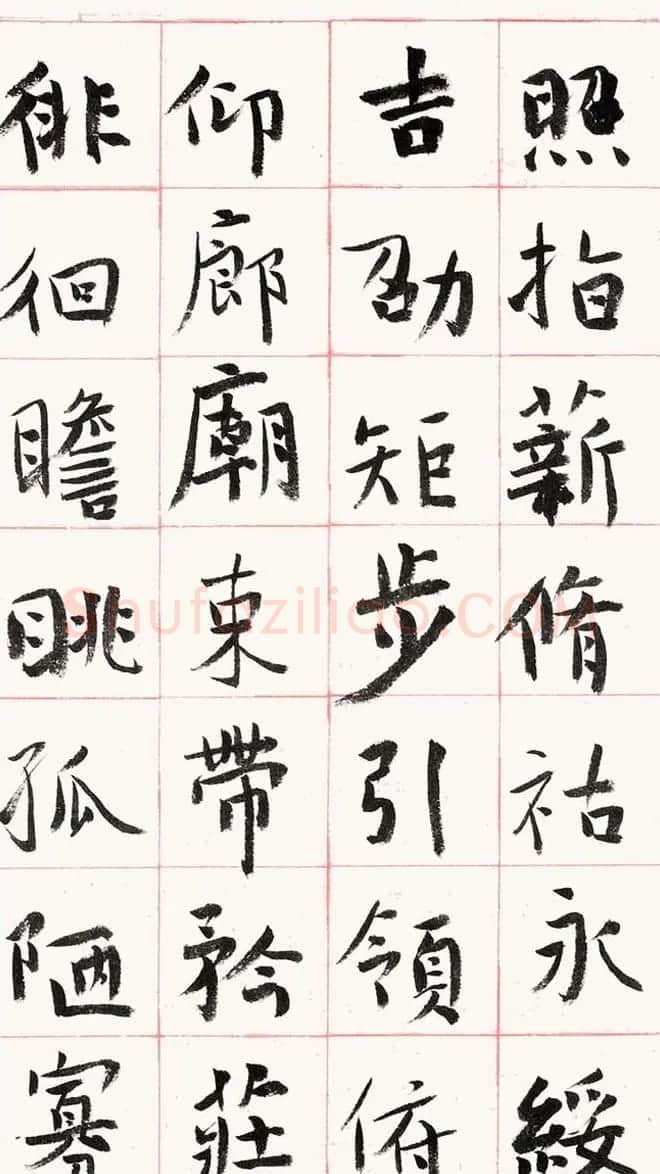 照指薪脩祜永綏
吉劭矩步引領俯
仰廊廟東帶矜莊
徘徊瞻眺孤陋寡
Shufaziliao.COM